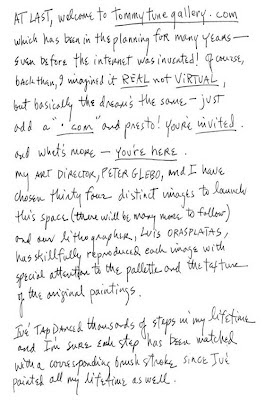 AT LAST, welcome to tommytunegallery.com
which has been in the planning for many years—
even before the internet was invented! Of course,
back then, I imagined it REAL not VIRTUAL,
but basically the dream's the same — just
add a ".com" and presto! You're invited.
and what's more — you're here.
my ART DIRECTOR, PETER GLEBO, and I have
chosen thirty four distinct images to launch
this space (there will be many more to follow)
and our lithographer, LUIS ORASPLATAS,
has skillfully reproduced each image with
special attention to the pallette and the texture
of the original paintings.
I've TAP DANCED thousands of steps in my lifetime
and I'm sure each step has been matched
with a corresponding brush stroke since I've
painted all my lifetime as well.